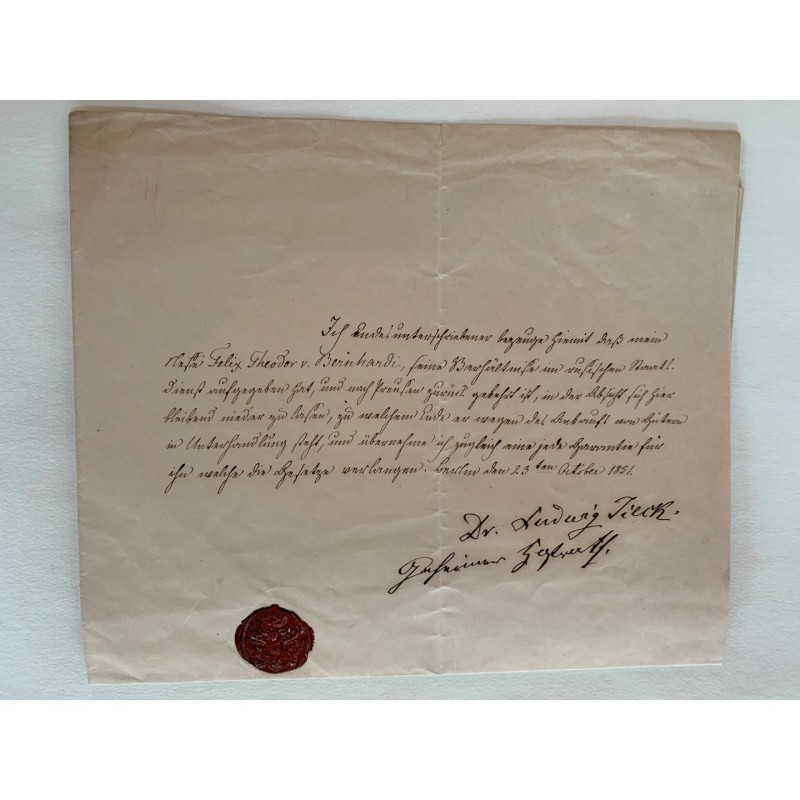 Ich Endesunterschriebener bezeuge hiemit daß mein
Neffe Felix Theodor v. Bernhardi, seine Verhältnisse im russischen Staats-
dienst aufgegeben hat, und nach Preusen zurück gekehrt ist, in der Absicht sich hier
bleibend nieder zu lassen, zu welchem Ende er wegen des Ankaufs von Gütern
in Unterhandlung steht, und übernehme ich zugleich eine jede Garantie für
ihn welche die Gesetze verlangen. Berlin den 23ten October 1851.
Dr. Ludwig Tieck.
Geheimer Hofrath.